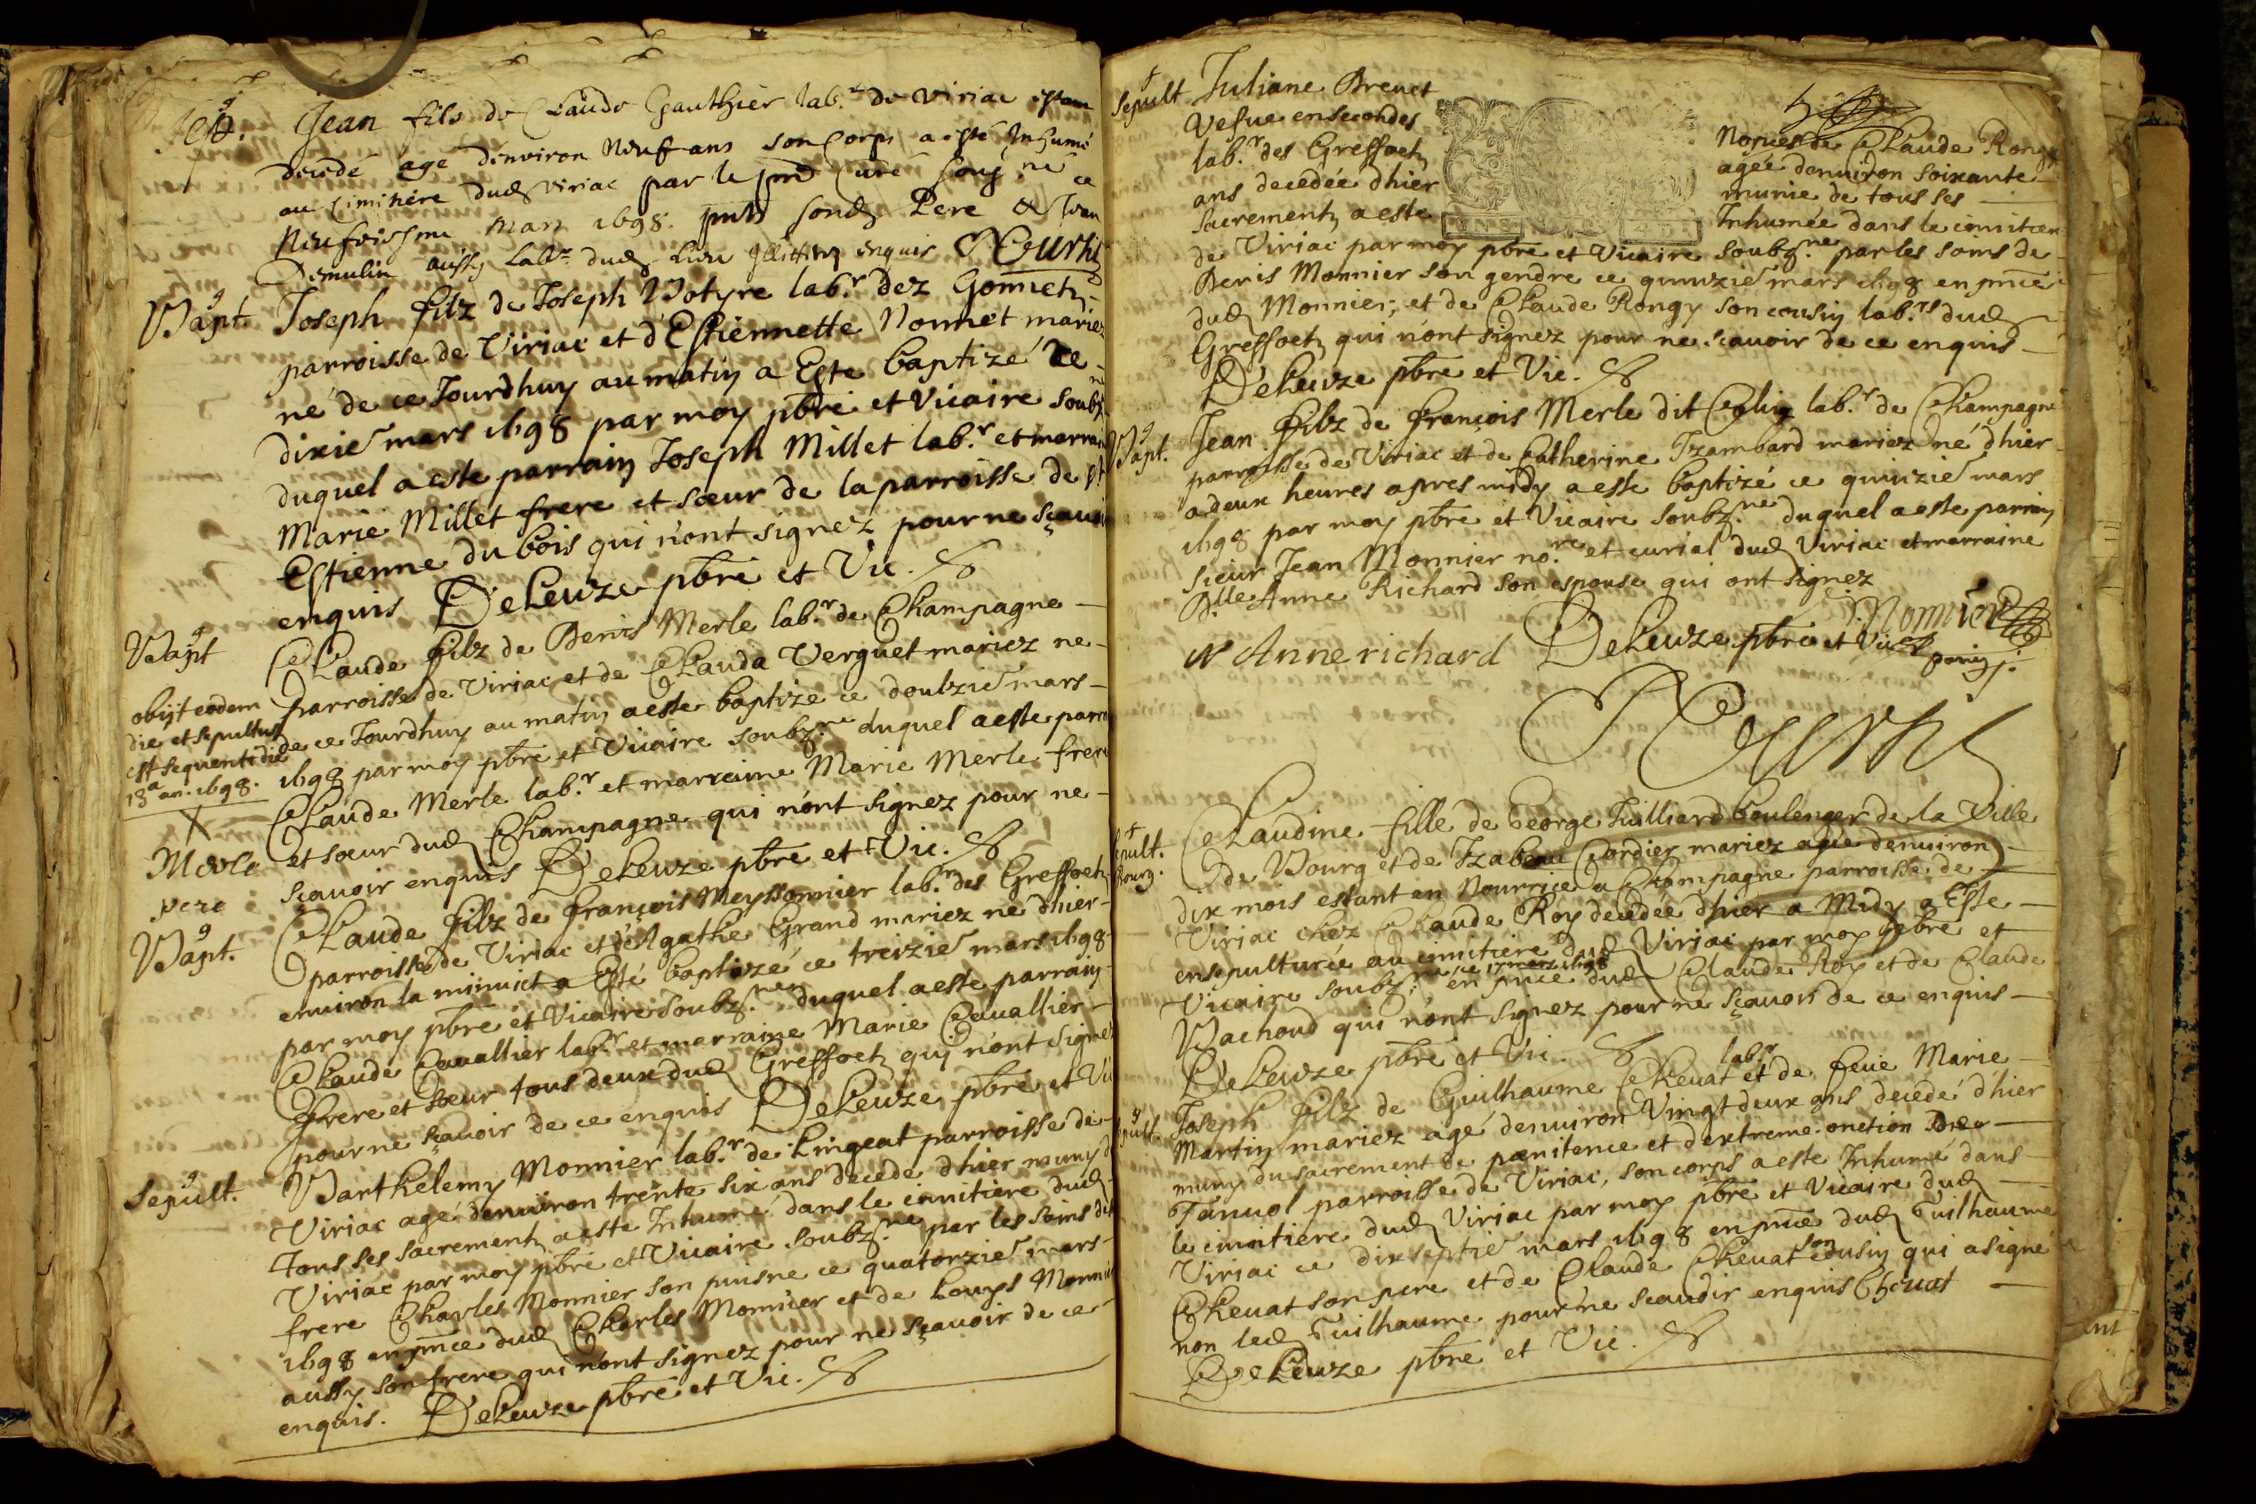 Jean fils de Claude Gauthier lab.r de Viriac estant
decedé agé d'environ Neuf ans son corps a esté Inhumé
au cimitière dud Viriac par le pnt Curé soub.né ce
Neufviesme Mars 1698. pnts sond Pere & Jean
Demulin aussy labr. dud Lieu Illitterez enquis
Bapt. Joseph filz de Joseph Botyre lab.r dez Gonnetz
parroisse de Viriac et d'Estiennette Nonnet mariez
né de ce Jourdhuy au matin a Este baptizé ce
dixie mars 1698 par moy pbre et Vicaire soubz.né
duquel a este parrain Joseph Millet lab.r et marraine
Marie Millet frere et sœur de la parroisse de st
Estienne du bois qui n'ont signez pour ne sçavoir
enquis DeLeuze pbre et Vic.
Bapt Claude filz de Denis Merle lab.r de Champagne
parroisse de Viriac et de Clauda Verguet mariez ne
obijt eodem
die et sepultus
est sequenti die
13a an. 1698.
de ce Jourdhuy au matin a este baptize ce doulzie mars
1698 par moy pbre et Vicaire soubz.ne duquel a este parrain
Claude Merle lab.r et marraine Marie Merle frere
Merle
pere
et sœur dud Champagne qui n'ont signez pour ne
scavoir enquis DeLeuze pbre et Vic.
Bapt. Claude filz de François Meyssonnier lab.r des Greffoetz
parroisse de Viriac et d'Agathe Grand mariez ne d'hier
environ la minuict a Esté baptizé ce treizie mars 1698
par moy pbre et Vicaire soubz.ne duquel a este parrain
Claude Cavallier lab.r et marraine Marie Cavallier
frere et sœur tous deux dud Greffoetz qui n'ont signez
pour ne sçavoir de ce enquis DeLeuze pbre et Vic
Sepult. Barthelemy Monnier lab.r de Lingeat parroisse de
Viriac agé denviron trente six ans decede d'hier muny de
tous ses sacrementz a este Inhumé dans le cimitiere dud
Viriac par moy pbre et Vicaire soubz.ne par les soins de
frere Charles Monnier son puisne ce quatorzie mars
1698 en pnce dud Charles Monnier et de Louys Monnier
aussy son frere qui n'ont signez pour ne sçavoir de ce
enquis. DeLeuze pbre et Vic.
Sepult Juliane Brevet
Vefue en secondes
Nopces de Claude Rongy
lab.r des Greffoetz
agée denviron soixante
ans decedée d'hier
munie de tous ses
Sacrementz a este
Inhumée dans le cimitiere
de Viriac par moy pbre et Vicaire soubz.ne par les soins de
Denis Monnier son gendre ce quinzie mars 1698 en pnce
dud Monnier, et de Claude Rongy son cousin lab.rs dud
Greffoetz qui n'ont signez pour ne scavoir de ce enquis
DeLeuze pbre et Vic.
Bapt. Jean filz de François Merle dit lab.r de Champagne
parroisse de Viriac et de Catherine Tzambard mariez né d'hier
a deux heures apres midy a este baptizé ce quinzie mars
1698 par moy pbre et Vicaire soubz.ne duquel a este parrain
sieur Jean Monnier no.re et curial dud Viriac et marraine
D.lle Anne Richard son espouse qui ont signez
Anne richard DeLeuze pbre et Vic Monnier
Sepult.
Bourg.
Claudine fille de George Juilliard boulenger de la Ville
de Bourg et de Izabeau Cordier mariez agée denviron
dix mois estant en nourrice a Champagne parroisse de
Viriac chez Claude Roy decedée d'hier a Midy a Este
ensepulturée au cimitiere dud Viriac par moy pbre et
Vicaire soubz.ne ce 17 mars 1698 en pnce dud Claude Roy et de Claude
Vachoud qui n'ont signez pour ne sçavoir de ce enquis
DeLeuze pbre et Vic.
Sepult Joseph filz de Guilhaume Chevat lab.r et de feue Marie
Martin mariez agé denviron Vingt deux ans decedé d'hier
muny du sacrement de pœnitence et dextreme onction
Tanvol parroisse de Viriac, son corps a este Inhumé dans
le cimitiere dud Viriac par moy pbre et Vicaire dud
Viriac ce dix septie mars 1698 en pnce dud Guilhaume
Chevat son pere et de Claude Chevat son cousin qui a signé
non led Guilhaume pour ne scavoir enquis Chevat
DeLeuze pbre et Vic.